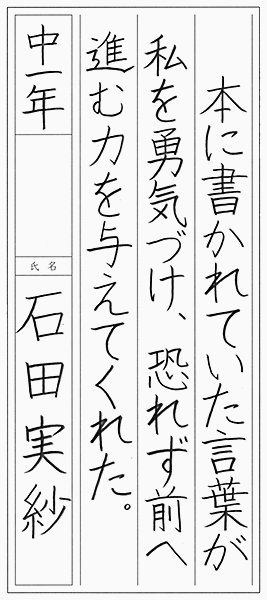 本に書かれていた言葉が
私を勇気づけ、恐れず前へ
進む力を与えてくれた。
中一年
氏名
石田実紗